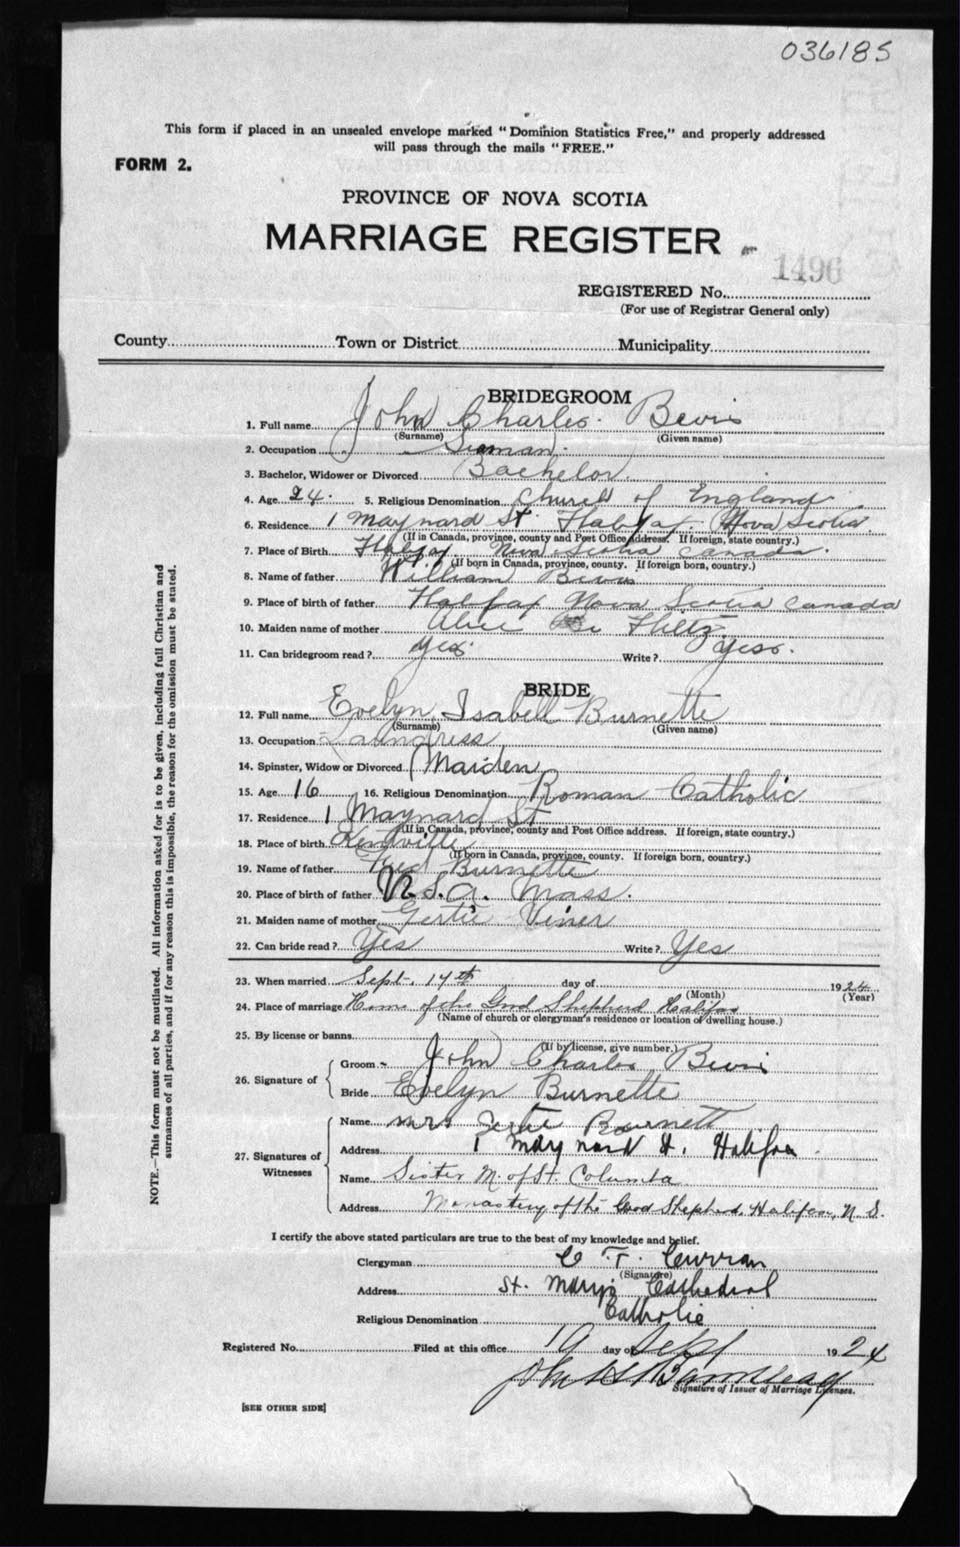 036185
This form if placed in an unsealed envelope marked "Dominion Statistics Free," and properly addressed
will pass through the mails "FREE."
FORM 2.
PROVINCE OF NOVA SCOTIA
MARRIAGE REGISTER
1496
REGISTERED No.
(For use of Registrar General only)
County Town or District Municipality
BRIDEGROOM
1. Full name John Charles Bevis
(Surname) (Given name)
2. Occupation Seaman
3. Bachelor, Widower or Divorced Bachelor
4. Age 24. 5. Religious Denomination Church of England
6. Residence 1 Maynard St. Halifax Nova Scotia
(If in Canada, province, county and Post Office address. If foreign, state country.)
7. Place of Birth Halifax Nova Scotia Canada.
(If born in Canada, province, county. If foreign born, country.)
8. Name of father William Bevis
9. Place of birth of father Halifax Nova Scotia Canada
10. Maiden name of mother Alice
11. Can bridegroom read? yes. Write? yes.
BRIDE
12. Full name Evelyn Isabell Burnette
(Surname) (Given name)
13. Occupation Laundress
14. Spinster, Widow or Divorced Maiden
15. Age 16 16. Religious Denomination Roman Catholic
17. Residence 1 Maynard St
(If in Canada, province, county and Post Office address. If foreign, state country.)
18. Place of birth Kentville
(If born in Canada, province, county. If foreign born, country.)
19. Name of father Fred Burnette
20. Place of birth of father U.S.A. Mass.
21. Maiden name of mother Gertie Viner
22. Can bride read? Yes Write? Yes
23. When married Sept. 17th day of 1924
(Month) (Year)
24. Place of marriage Home of the Good Shepherd Halifax
(Name of church or clergyman's residence or location of dwelling house.)
25. By license or banns
(If by license, give number.)
26. Signature of Groom John Charles Bevis
Bride Evelyn Burnette
27. Signatures of Witnesses
Name Mrs Gertie Burnett
Address 1 Maynard St. Halifax
Name Sister M. of St. Columba
Address Monastery of the Good Shepherd, Halifax, N.S.
I certify the above stated particulars are true to the best of my knowledge and belief.
Clergyman C. T. Curran
(Signature)
Address St. Mary's Cathedral
Religious Denomination Catholic
Registered No. Filed at this office 19 day of Sept 1924
John
Signature of Issuer of Marriage Licenses.
[SEE OTHER SIDE]
NOTE.—This form must not be mutilated. All information asked for is to be given, including full Christian and
surnames of all parties, and if for any reason this is impossible, the reason for the omission must be stated.